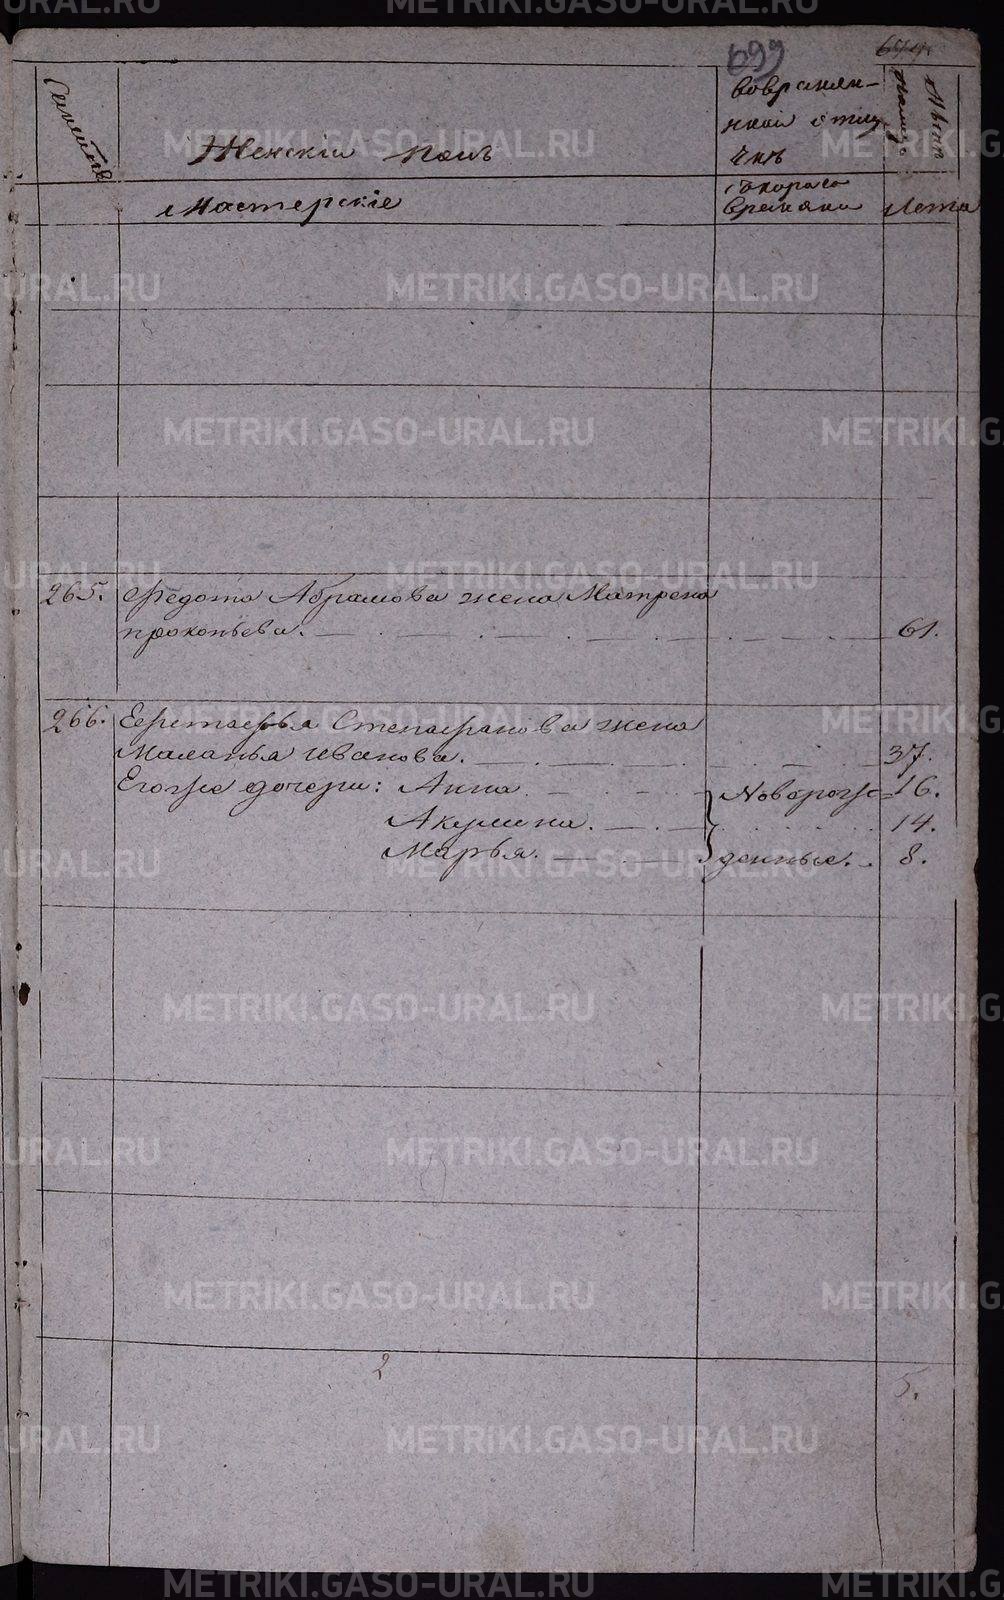 699
Семейство
Женскій полъ
во временнной отлучкѣ
Нынѣ на лицо
Мастерскіе
с котораго времени
Лета
265. Федота Абрамова жена Матрена
прокопьева. 61.
266. Евстафья Степанова жена
Маланья Иванова. 37.
Егоже дочери: Анна Новорож= 16.
Акулина. 14.
Марья. денные. 8.
2
5.
METRIKI.GASO-URAL.RU